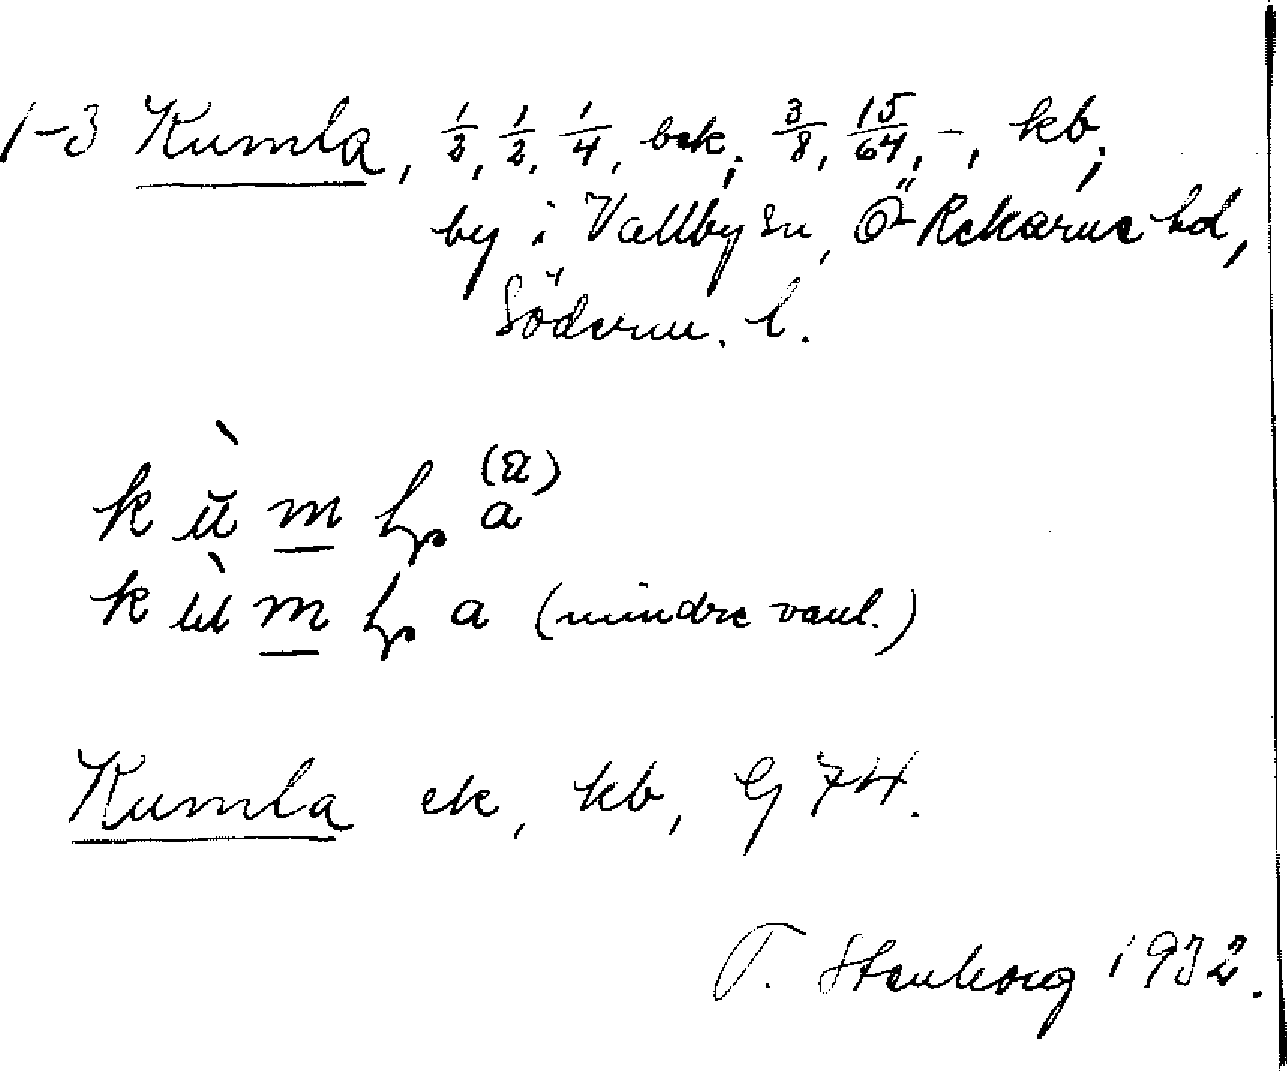 1-3 Kumla, 1/2, 1/2, 1/4, bek; 3/8, 15/64, -, kb;
by i Vallby sn, Ö Rekarne hd,
Söderm. l.
(a)
k ù m l a
k ù m l a (mindre vanl.)
Kumla ek, kb, G 74.
T. Stenborg 1932.